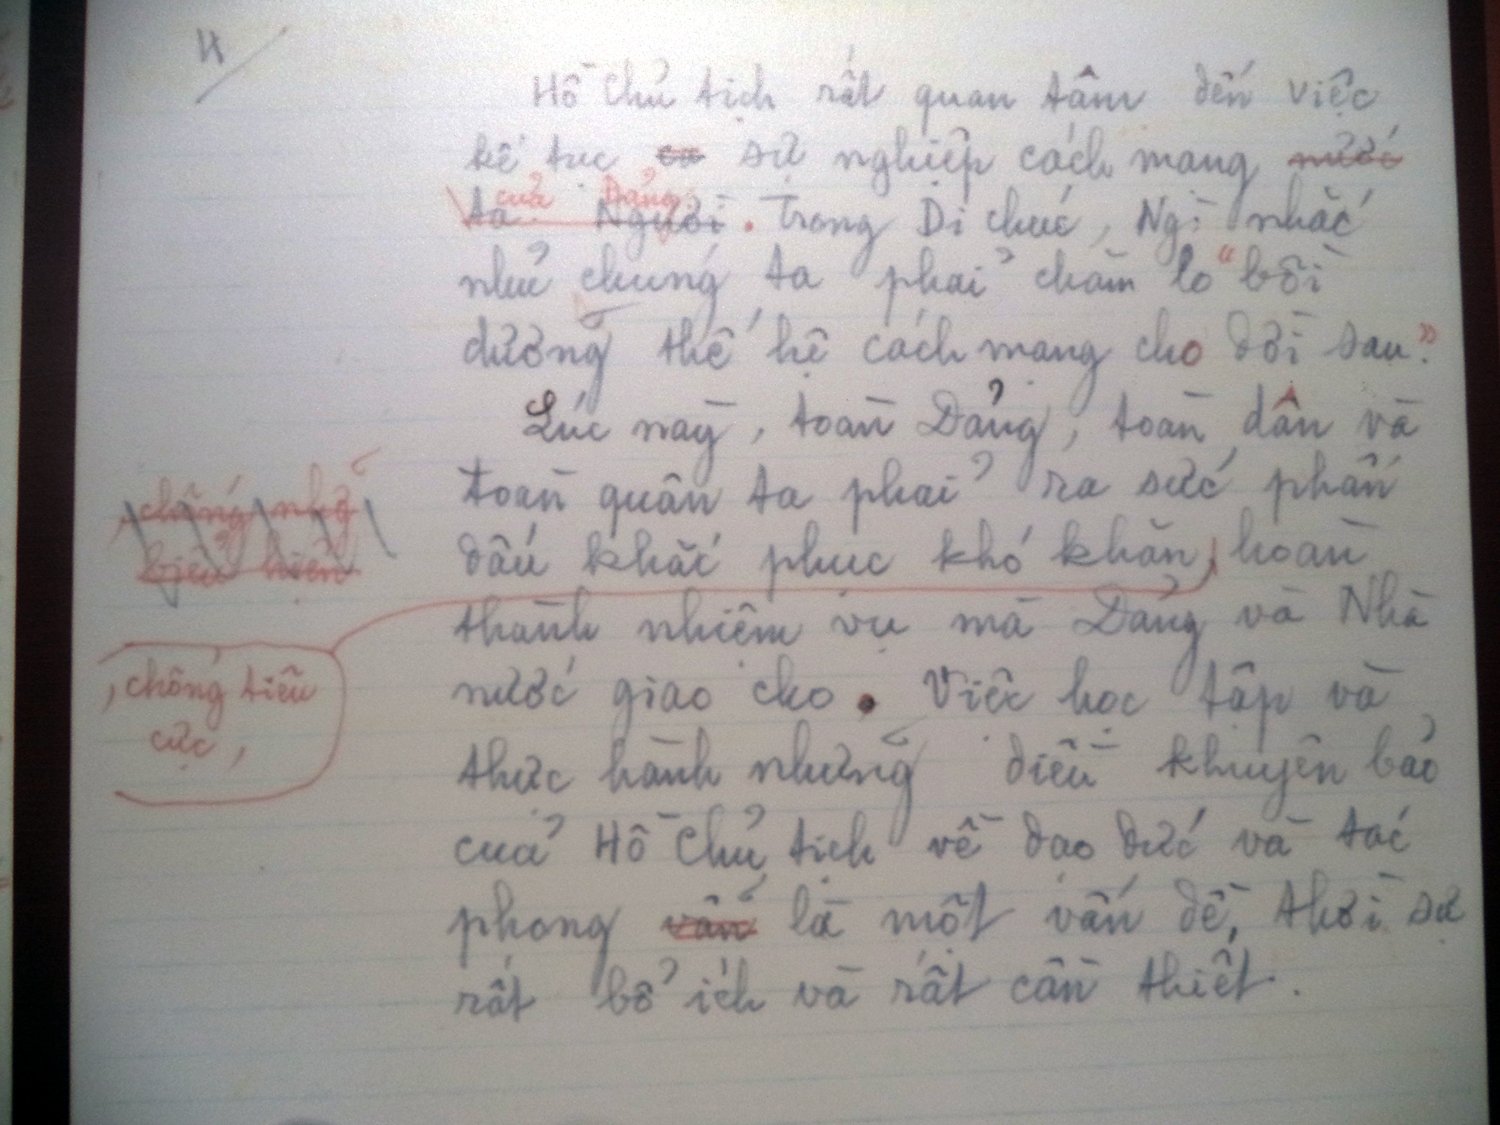 4/
Hồ Chủ tịch rất quan tâm đến việc
kế tục sự nghiệp cách mạng nước
của Đảng
ta Người. Trong Di chúc, Ng` nhắc
nhở chúng ta phải chăm lo "bồi
dưỡng thế hệ cách mạng cho đời sau".
Lúc này, toàn Đảng, toàn dân và
toàn quân ta phải ra sức phấn
đấu khắc phục khó khăn, hoàn
thành nhiệm vụ mà Đảng và Nhà
nước giao cho. Việc học tập và
thực hành những điều khuyên bảo
của Hồ Chủ tịch về đạo đức và tác
phong vẫn là một vấn đề, thời sự
rất bổ ích và rất cần thiết.
, chống những
biểu hiện
, chống tiêu
cực,